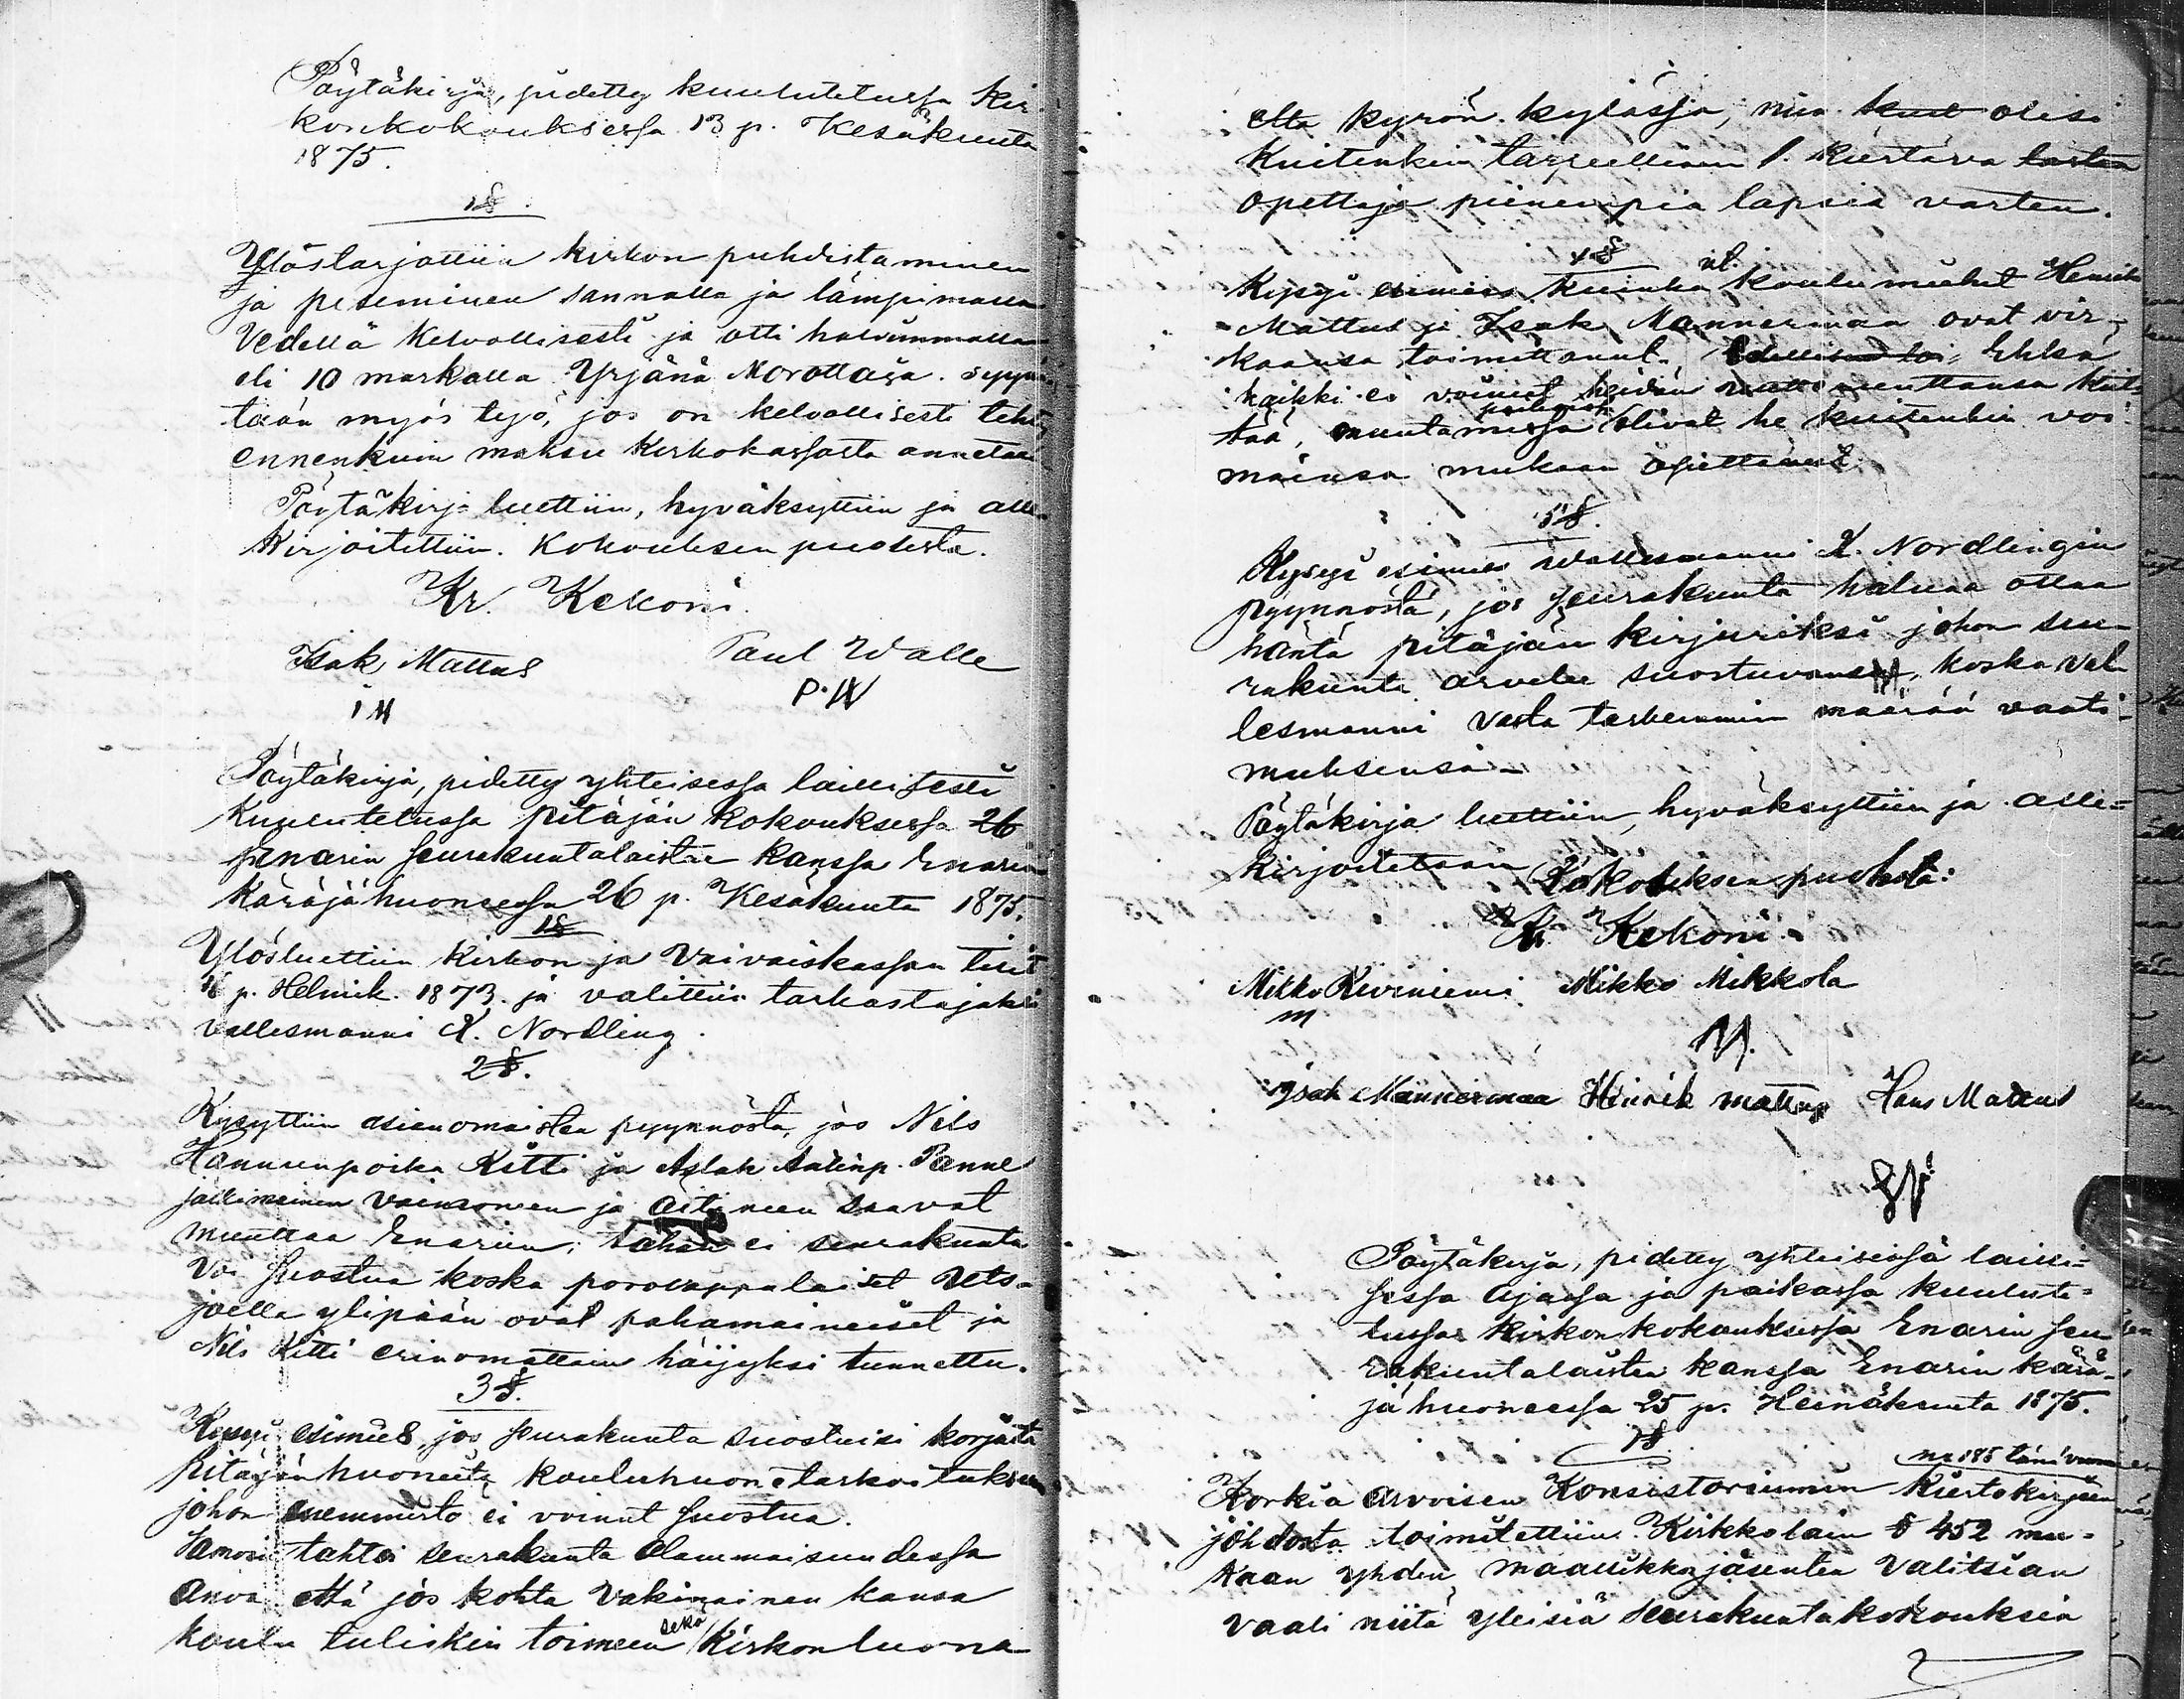 Pöytäkirja, pidetty kuulutetussa kir-
konkokouksessa 13 p. Kesäkuuta
1875.
1 §.
Ylöstarjottiin kirkon puhdistaminen
ja peseminen sannalla ja lämpimällä
Vedellä kelvollisesti ja otti halvimmalla
eli 10 markalla Yrjänä Morottaja. syynä-
tään myös työ, jos on kelvollisesti tehty
ennenkuin maksu kirkokassasta annetaan.
Pöytäkirja luettiin, hyväksyttiin ja alle-
kirjoitettiin. Kokouksen puolesta.
Kr. Kekoni.
Isak Mattus Paul Walle
I M P. W
Pöytäkirja, pidetty yhteisessa laillisesti
Kuulutetussa pitäjän kokouksessa 26
Enarin seurakuntalaisten kanssa Enarin
käräjähuoneessa 26 p. Kesäkuuta 1875.
1 §
Ylösluettiin kirkon ja Vaivaiskassan tilit
p. Helmik. 1873 ja valittiin tarkastajaksi
Vallesmanni K. Nordling.
2 §.
Kysyttiin asianomaisten pyynnöstä, jos Nils
Hannunpoika Kitti ja Aslak Antinp. Panne
jälkimäinen vaimoneen ja äitineen saavat
muuttaa Enariin; tähän ei seurakunta
Voi suostua koska porolappalaiset Uts-
joella ylipään ovat pahamaineiset ja
Nils Kitti erinomattain häijyksi tunnettu.
3 §.
Kysyi esimies jos seurakunta suostuisi korjata
pitäjänhuonetta kouluhuonetarkoitukseen
johon enemmistö ei voinut suostua.
Samosi tahtoi seurakunta alammaisuudessa
anoa että jos kohta Vakinainen kansa
koulu tuliskin toimeen sekä kirkon luona
että kyrön kylässä, niin kuit olisi
Kuitenkin tarpeellinen 1. kiertävä lasten
opettaja pienempiä lapsia varten.
4 §
Kysyi esimies kuinka vt. koulumiehet Henrik
Mattus ja Isak Mannermaa ovat vir-
kaansa toimittanut. Ehkä
kaikki ei voineet heidän kiit-
tää, muutamissa olivat he kuitenkin voi-
mainsa mukaan opettaneet.
5 §.
Kysyi esimies Vallesmanni K. Nordlingin
pyynnöstä, jos seurakunta haluaa ottaa
häntä pitäjän kirjuriksi johon seu-
rakunta arvelee suostuvansa, koska Val-
lesmanni vasta tarkemmin määrää vaati-
muksensa.
Pöytäkirja luettiin, hyväksyttiin ja alle-
kirjoitetaan Kokouksen puolesta:
Kr. Kekoni.
Mikko Kiviniemi Mikko Mikkola
m M.
Isak Mannermaa Henrik Mattus Hans Mattus
Pöytäkirja, pidetty yhteisessä lailli-
sessa ajassa ja paikassa kuulute-
tussa kirkonkokouksessa Enarin seu-
rakuntalaisten kanssa Enarin kärä-
jä huoneessa 25 p. Heinäkuuta 1875.
1 §.
no 185 tänä vuonna
Korkia arvoisen Konsistoriumin kiertokirjeen
johdosta toimitettiin Kirkkolain § 452 mu-
kaan yhden maallikkojäsenten Valitsian
vaali niitä yleisiä seurakuntakokouksia